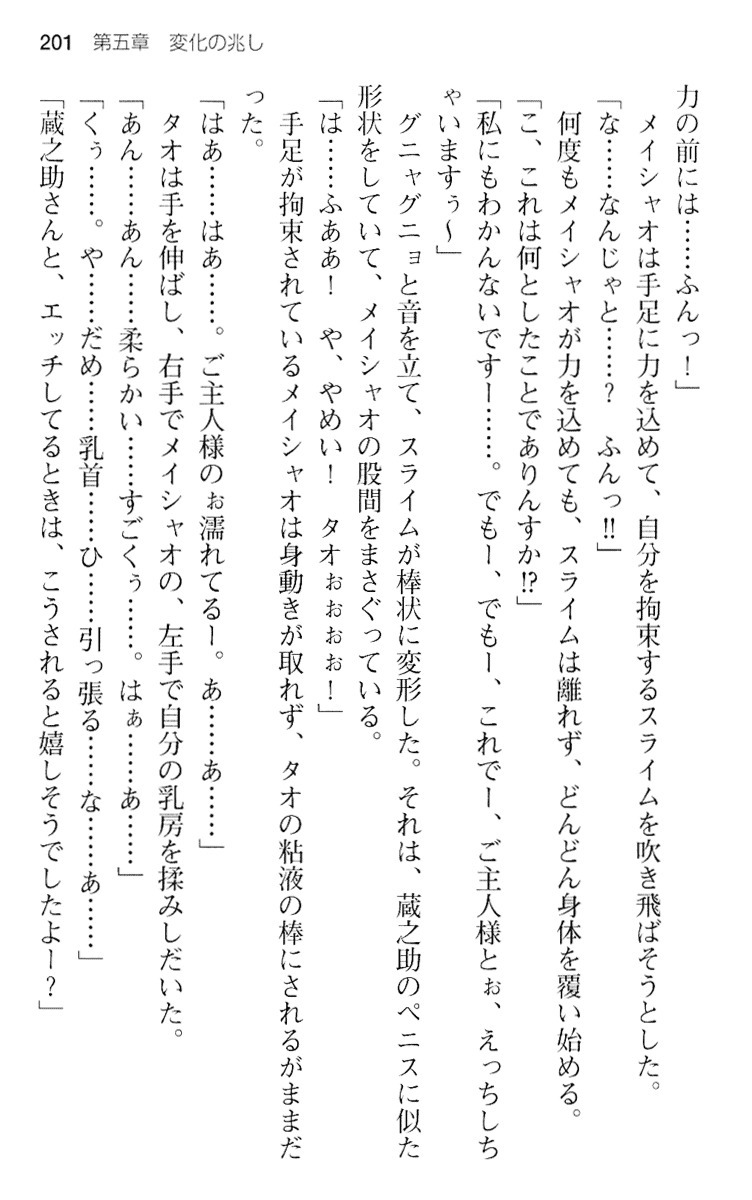 201 第五章 変化の兆し
力の前には……ふんっ！」
　メイシャオは手足に力を込めて、自分を拘束するスライムを吹き飛ばそうとした。
「な……なんじゃと……？　ふんっ!!」
　何度もメイシャオが力を込めても、スライムは離れず、どんどん身体を覆い始める。
「こ、これは何としたことでありんすか!?」
「私にもわかんないですー……。でもー、でもー、これでー、ご主人様とぉ、えっちしち
ゃいますぅ～」
　グニャグニョと音を立て、スライムが棒状に変形した。それは、蔵之助のペニスに似た
形状をしていて、メイシャオの股間をまさぐっている。
「は……ふああ！　や、やめい！　タオぉぉぉぉ！」
　手足が拘束されているメイシャオは身動きが取れず、タオの粘液の棒にされるがままだ
った。
「はあ……はあ……。ご主人様のぉ濡れてるー。あ……あ……」
　タオは手を伸ばし、右手でメイシャオの、左手で自分の乳房を揉みしだいた。
「あん……あん……柔らかい……すごくぅ……。はぁ……あ……」
「くぅ……。や……だめ……乳首……ひ……引っ張る……な……あ……」
「蔵之助さんと、エッチしてるときは、こうされると嬉しそうでしたよー？」